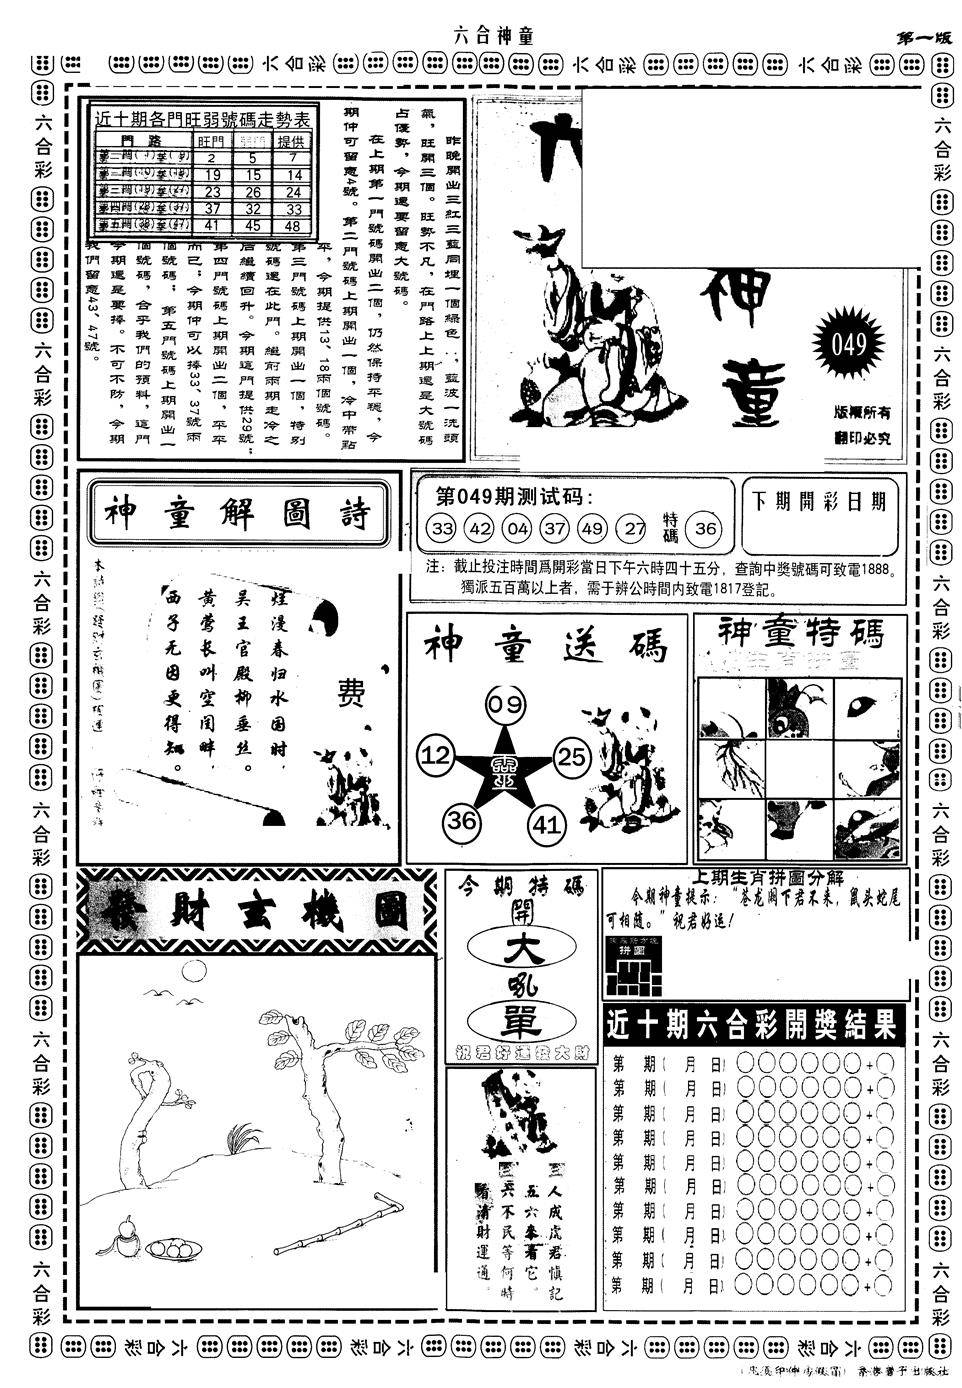 六合神童
第一版
近十期各門旺弱號碼走勢表
門 路 旺門 提供
2 5 7
19 15 14
23 26 24
37 32 33
第五門(38)至(47) 41 45 48
昨晚開出三紅三藍同埋一個綠色
藍波一洗頭
氣，旺開三個。旺勢不凡，在門路上上期還是大號碼
占優勢，今期還要留意大號碼。
在上期第一門號碼開出二個，仍然保持平穩，今
期仲可留意4號。第二門號碼上期開出一個，冷中帶點
卒，今期提供13，18兩個號碼。
第三門號碼上期開出一個，特別
號碼還在此門。繼前兩期走冷之
后繼續回升。今期這門提供29號；
第四門號碼上期開出二個，平平
而已；今期仲可以捧33，37號兩
個號碼；第五門號碼上期開出一
個號碼，合乎我們的預料，這門
今期還是要捧。不可不防，今期
我們留意43，47號。
神
童
049
版權所有
翻印必究
神童解圖詩
烂漫春归水国时，
吴王宫殿柳垂丝。
黄莺长叫空闺畔，
西子无因更得知。
费
第049期测试码：
33 42 04 37 49 27 特碼 36
下期開彩日期
注：截止投注時間爲開彩當日下午六時四十五分，查詢中獎號碼可致電1888。
獨派五百萬以上者，需于辨公時間内致電1817登記。
神童送碼
09
12
25
靈
36
41
神童特碼
生肖拼圖
發財玄機圖
今期特碼
開
大
吼
單
祝君好運發大財
上期生肖拼圖分解
今期神童提示：“苍龙阁下君不来，鼠头蛇尾
可相随。”祝君好运！
拼圖
人成虎君慎記
五六來看它。
六不民等何時
看清財運通。
近十期六合彩開獎結果
第 期( 月 日) +
第 期( 月 日) +
第 期( 月 日) +
第 期( 月 日) +
第 期( 月 日) +
第 期( 月 日) +
第 期( 月 日) +
第 期( 月 日) +
第 期( 月 日) +
第 期( 月 日) +
六合彩